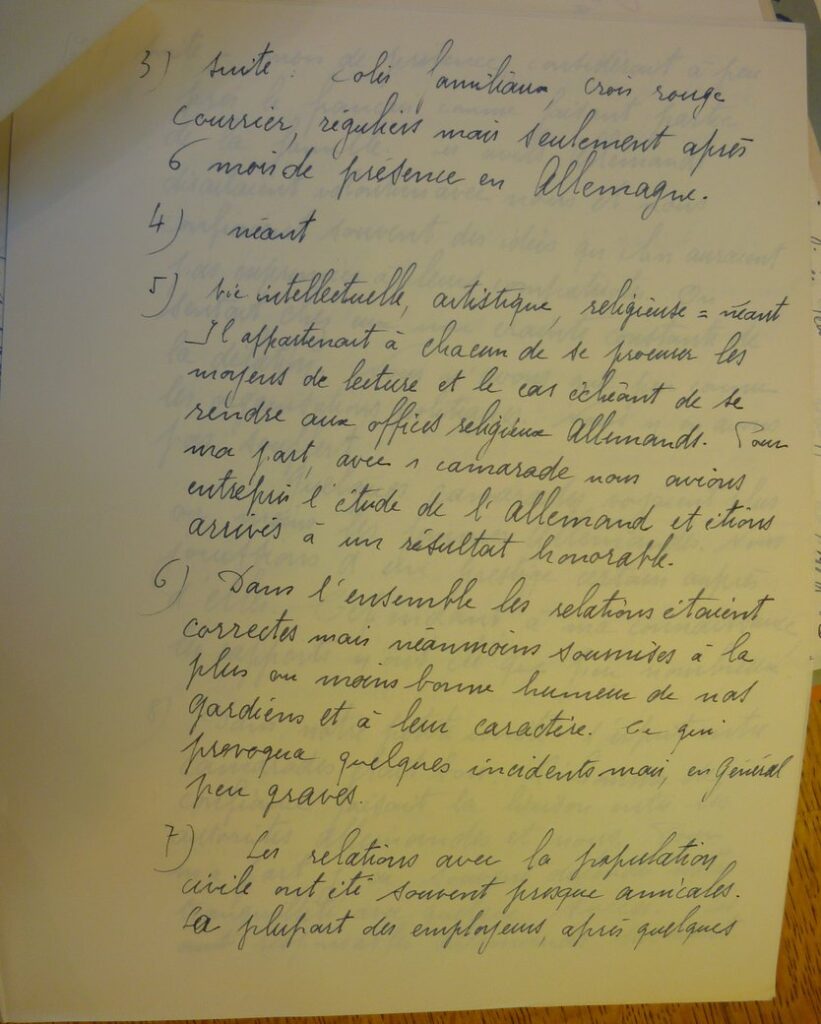 3) suite : Colis familiaux, croix rouge
courrier, réguliers mais seulement après
6 mois de présence en Allemagne.
4) néant
5) vie intellectuelle, artistique, religieuse = néant
Il appartenait à chacun de se procurer les
moyens de lecture et le cas échéant de se
rendre aux offices religieux Allemands. Pour
ma part, avec 1 camarade nous avions
entrepris l'étude de l'Allemand et étions
arrivés à un résultat honorable.
6) Dans l'ensemble les relations étaient
correctes mais néanmoins soumises à la
plus ou moins bonne humeur de nos
gardiens et à leur caractère. Ce qui
provoqua quelques incidents mais, en Général
peu graves.
7) Les relations avec la population
civile ont été souvent presque amicales.
La plupart des employeurs, après quelques